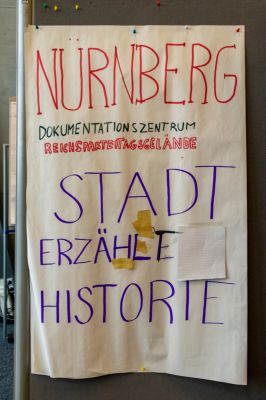 NÜRNBERG
DOKUMENTATIONSZENTRUM
REICHSPARTEITAGSGELÄNDE
STADT
ERZÄHLE
HISTORIE